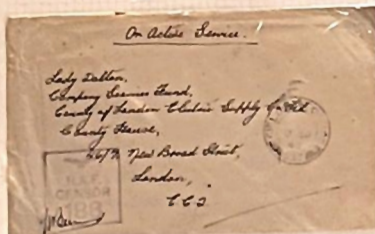 On Active Service.
Lady Dalton,
Company Services Fund,
County of London Electric Supply Co Ltd
County House,
46/7 New Broad Street,
London,
E C 2
R.A.F.
CENSOR
188